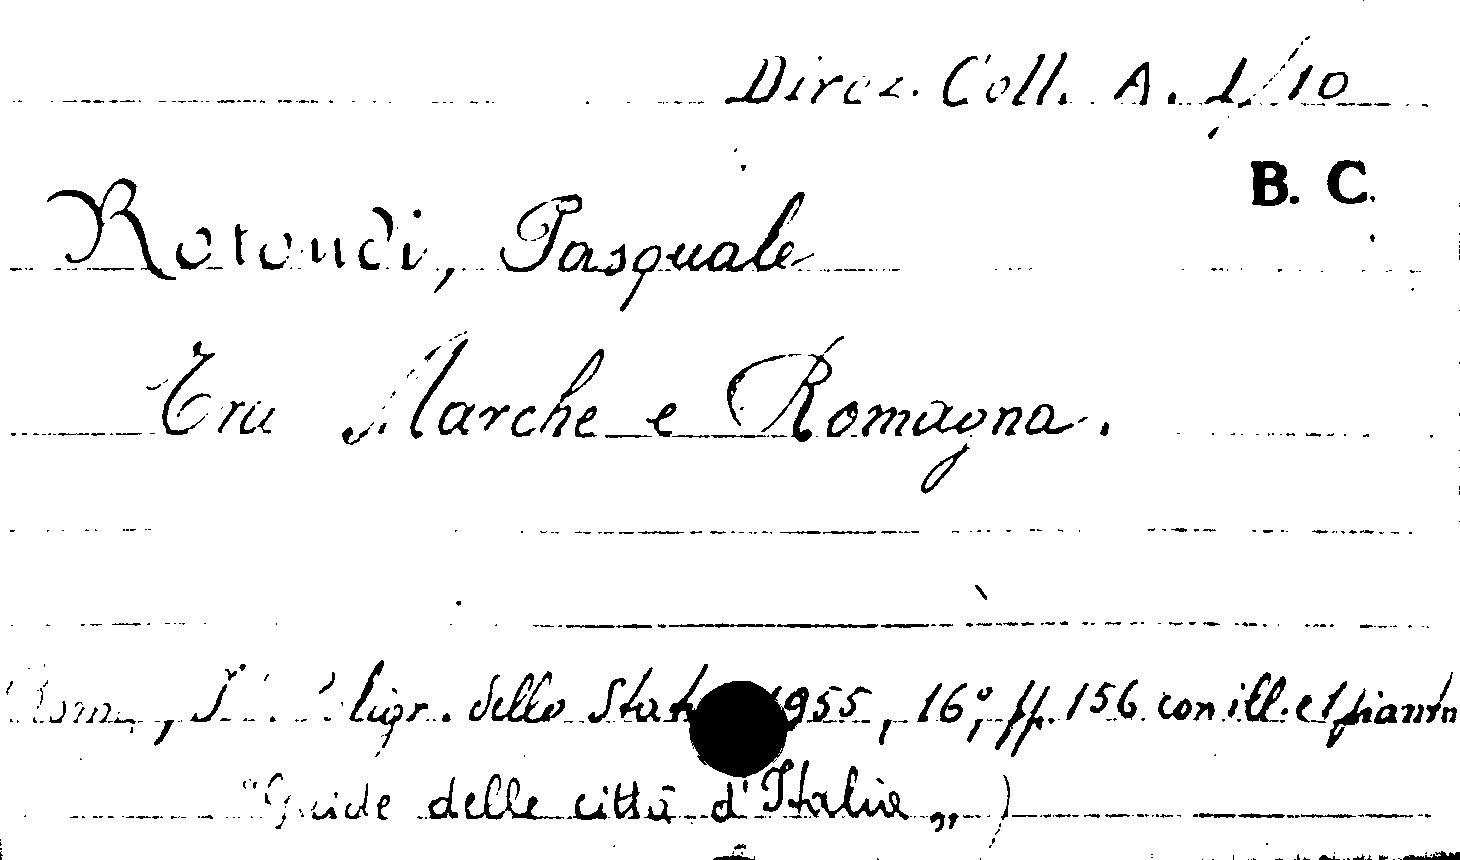 Direz. Coll. A. 1/10
B. C.
Rotondi, Pasquale
Tra Marche e Romagna.
Roma, Ist. Poligr. dello Stato 1955, 16°, pp. 156 con ill. e 1 pianta
"Guide delle città d'Italia")